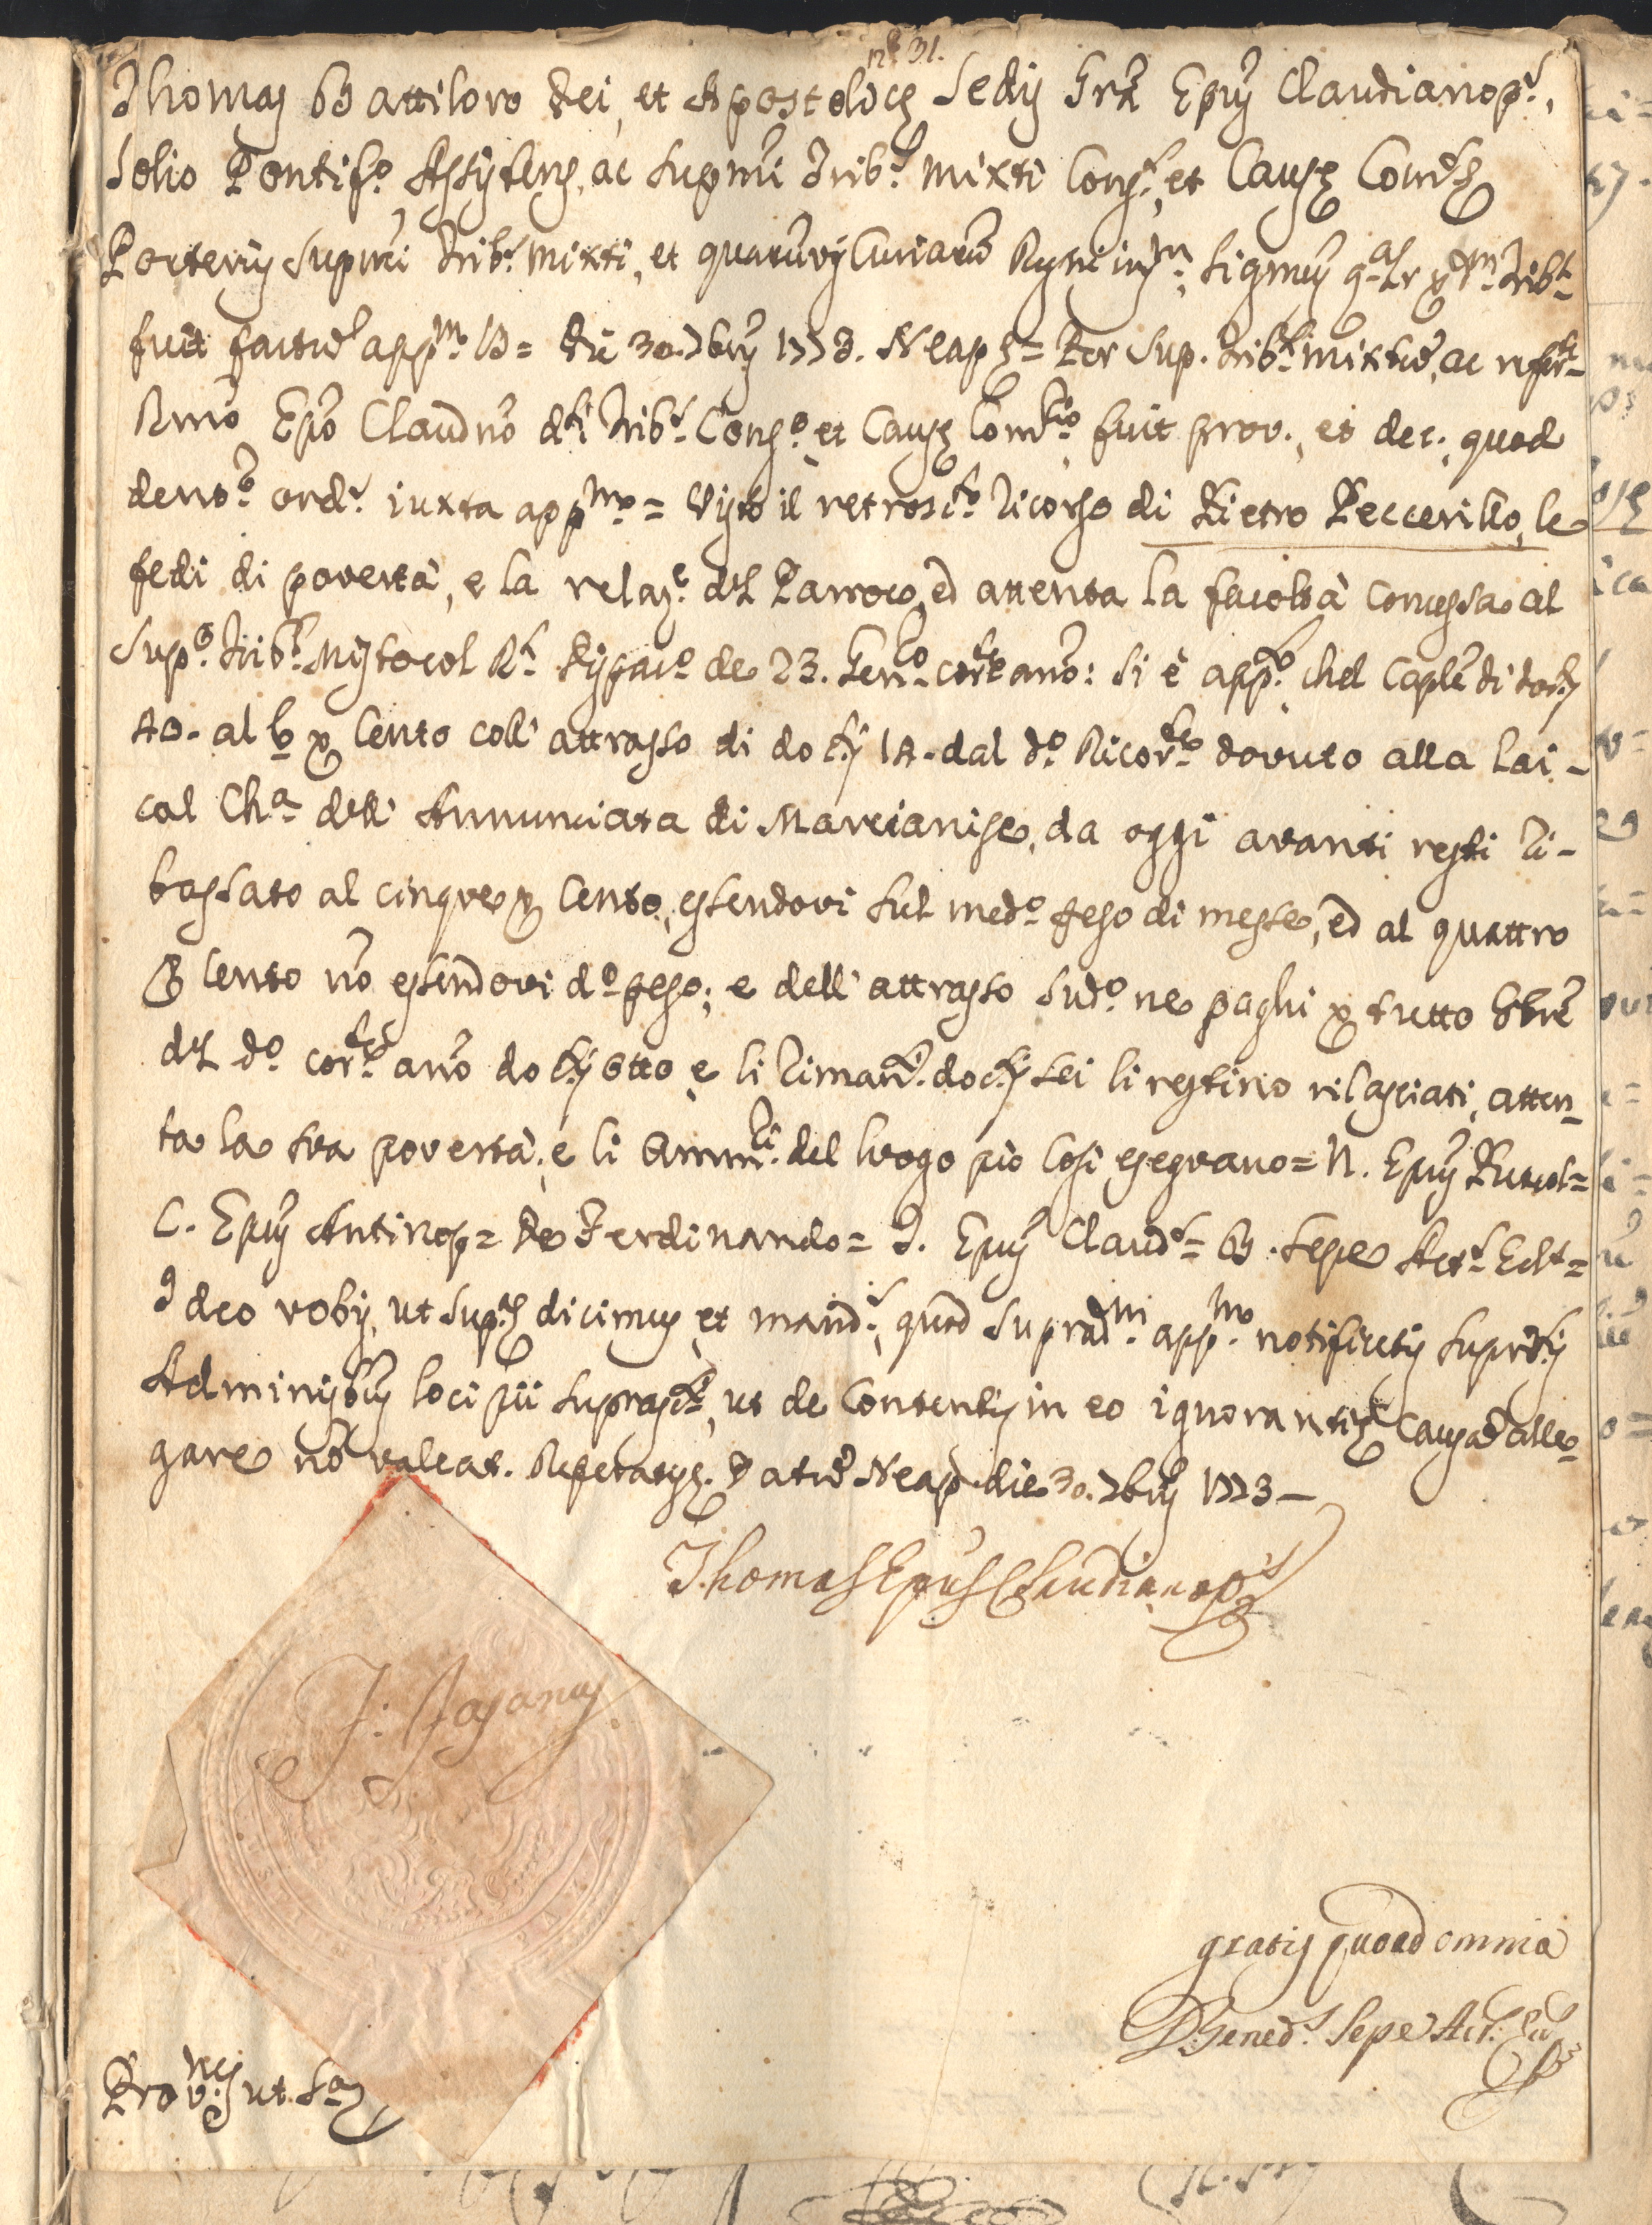 n.º 31.
Thomas Battiloro Dei, et Apostolicę Sedis Gra Epus Claudianop.s,
Solio Pontif.o Assistens, ac Supmi Trib.s Mixti Cons.s, et Causę Com.s
Porteriis Supmi Trib.s Mixti, et quarumvis Curiarum Regni Sigmus q.al.r p. Trib.l
fuit factum app.m = Die 30. 7bris 1773. Neap = Per Sup. Trib.l mixtum, ac
Rmo Epo Claudno d.ti Trib.s Cons.o et Causę Com.rio fuit prov., et dec., quod
ord.r iuxta app.mo = Visto il retros.to Ricorso di Pietro Peccerillo, le
fedi di povertà, e la relaz.e del Parroco, ed attenta la facoltà concessa al
Sup.o Trib.l Misto col R.l Dispac.o de 23. Gen.o cor.te anno: Si è app.to chel Caple di doc.ti
40. al 6 p Cento coll' attrasso di doc.ti 14. dal d.o Ricor.te dovuto alla Lai-
cal Ch.a dell' Annunciata di Marcianise, da oggi avanti resti ri-
bassato al cinque p Cento, essendovi sul med.o peso di messe, ed al quattro
p Cento nō essendovi d.o peso; e dell' attrasso sud.o ne paghi p tutto 8bre
del d.o cor.te anno doc.ti otto e li riman.ti doc.ti sei li restino rilasciati, atten-
ta la sua povertà, e li Amm.ri del luogo pio così eseguano = N. Epus Puteol =
C. Epus Antinop = De Ferdinando = T. Epus Claud.s = B. Sepe Act.s Eclt =
Ideo vobis, ut sup.a dicimus, et mand.s, quod suprad.m app.mo notificetis supr.tis
Administris loci pii supras.ti, ut de Contentis in eo ignorantię Causam alle-
gare nō valeat. Repetatys. Datum Neap. die 30. 7bris 1773 -
Thomas Epus Claudianop.s
J: Jasanus
gratis quoad omnia
D. Bened.s Sepe Act.s
Prov.ncis ut S.a